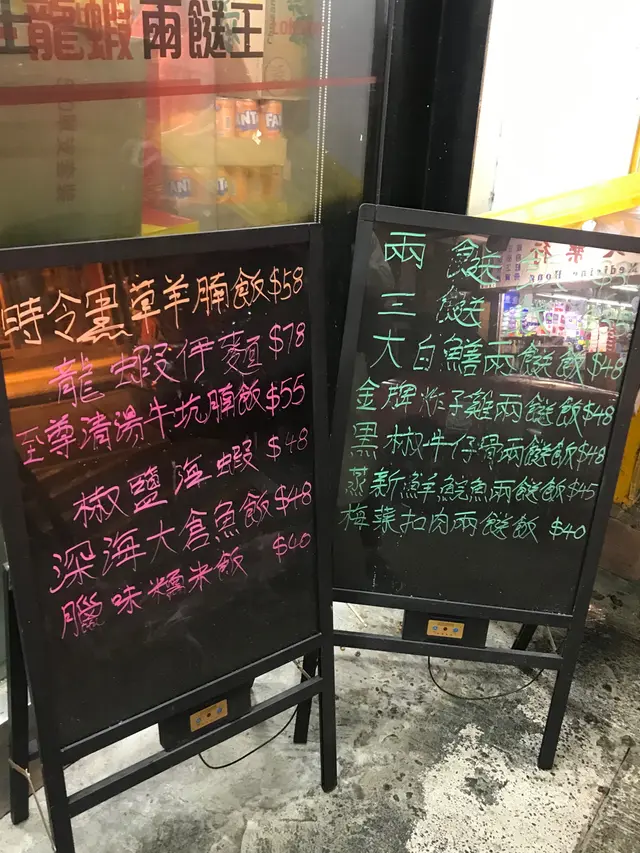 龍蝦兩餸王
FANTA
時令黑草羊腩飯$58
龍蝦伊麵$78
至尊清湯牛坑腩飯$55
椒鹽海蝦 $48
深海大倉魚飯$48
臘味糯米飯 $40
兩餸
三餸
大白鱔兩餸飯$48
金牌炸子雞兩餸飯$48
黑椒牛仔骨兩餸飯$48
蒸新鮮鯇魚兩餸飯$45
梅菜扣肉兩餸飯 $40